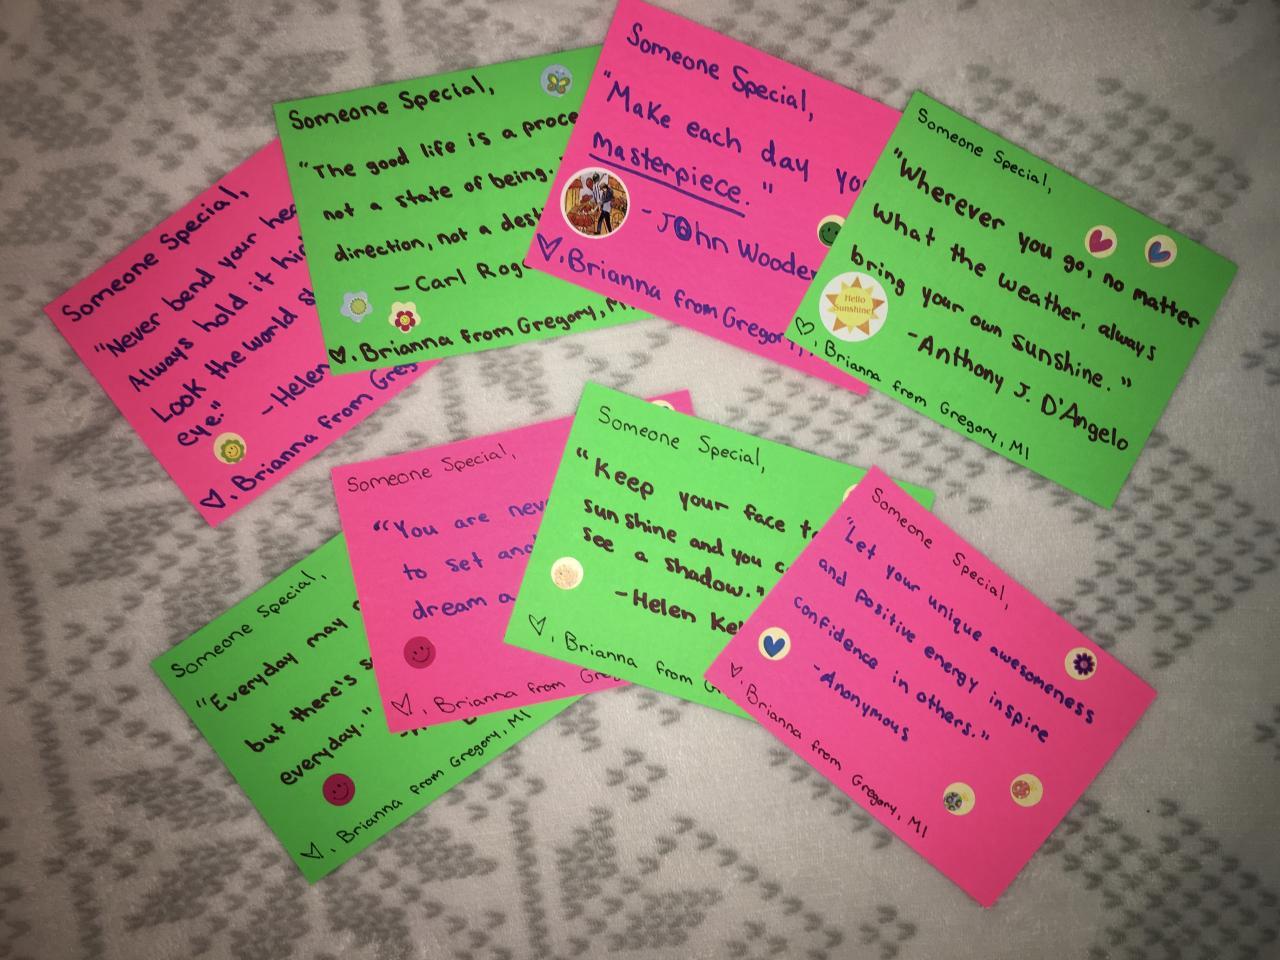 Someone Special,
"Never bend your
Always hold it
Look the world
eye."
-Helen
♡, Brianna from
Someone Special,
"The good life is a
not a state of being.
direction, not a
-Carl
♡, Brianna from Gregory,
Someone Special,
"Make each day
masterpiece."
-John
♡, Brianna from
Someone Special,
"Wherever you go, no matter
what the weather, always
bring your own sunshine."
Hello
Sunshine!
-Anthony J. D'Angelo
♡, Brianna from Gregory, MI
Someone Special,
"Everyday may
but there's
everyday."
♡, Brianna from Gregory, MI
Someone Special,
"You are
to set
dream a
♡, Brianna from
Someone Special,
"Keep your face
sunshine and you
see a shadow."
-Helen
♡, Brianna from
Someone Special,
"Let your unique awesomeness
and positive energy inspire
confidence in others."
-Anonymous
♡, Brianna from Gregory, MI